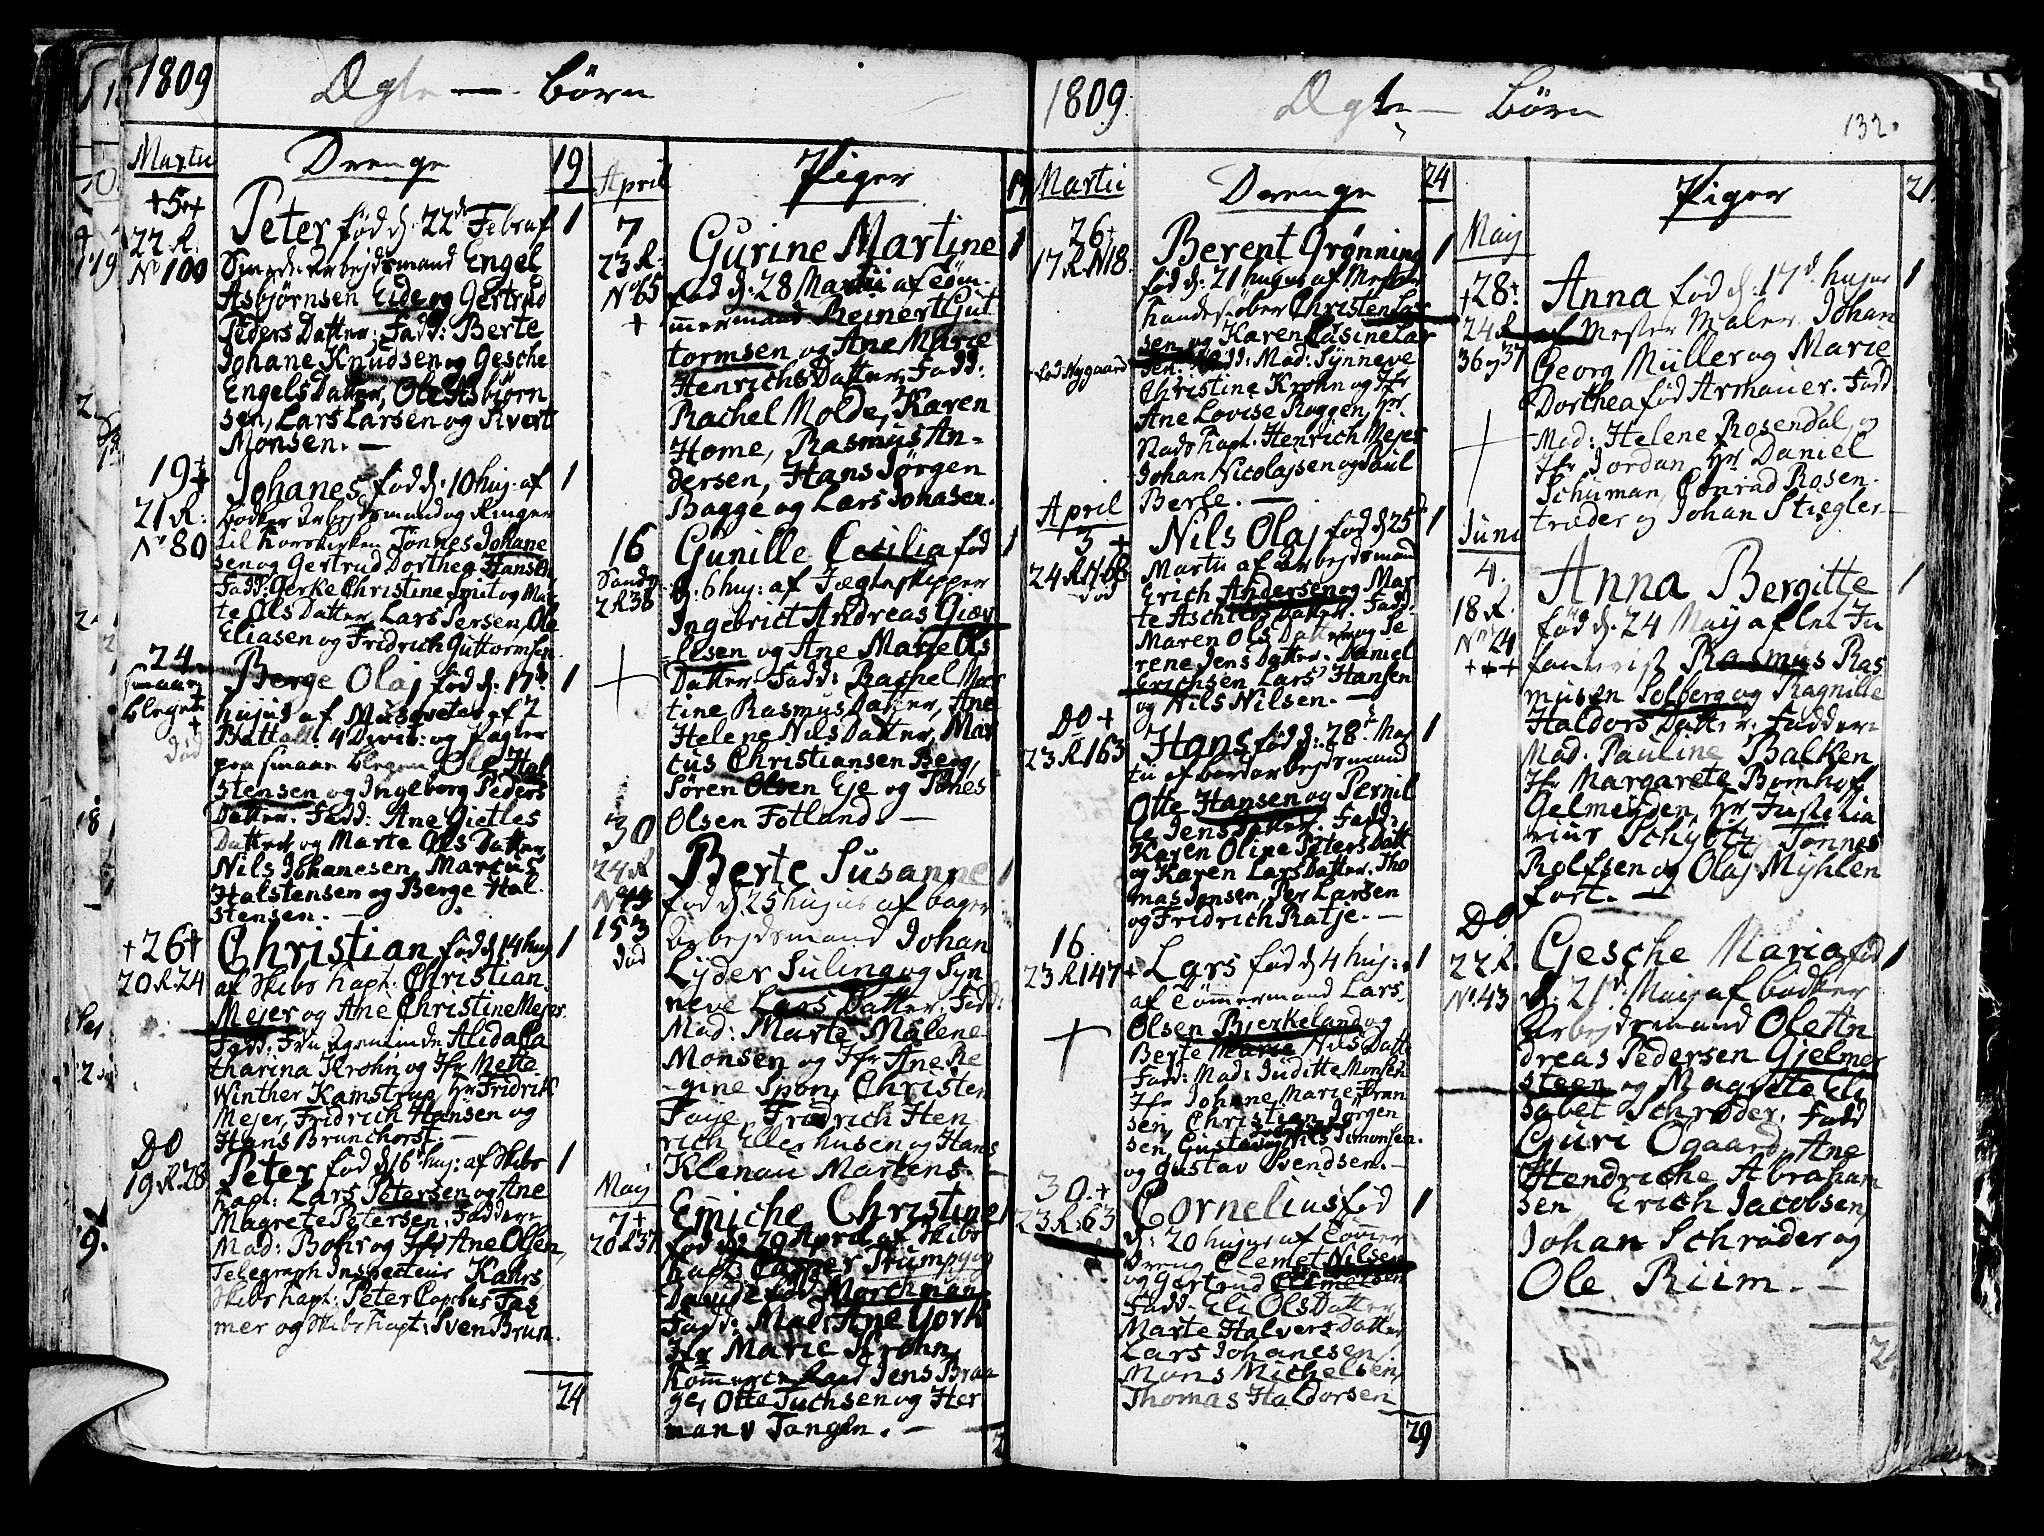 1809
Ægte — Børn
Martii
Drenge
19
+5++
22 R.
No 100
Peter fød d. 22de Febr af
Smede Arbejdsmand Engel
Asbjørnsen Eide og Gertrud
Peders Datter. Fadd: Berte
Johane Knudsen og Gesche
Engels Datter, Ole Asbjørn
sen, Lars Larsen og Sivert
Monsen. —
1
19+
21 R.
No 80
Johanes fød d. 10 huj. af
Bødker Arbejdsmand og Ringer
til Korskirken Tønnes Johane
sen og Gertrud Dorthea Hansen,
Fadd: Gerke Christine Smit og Mar
te Ols Datter, Lars Persen, Ole
Eliasen og Fridrich Guttormsen
1
24
Smaae
Blegen
+
død
Berge Olaj fød d. 17de
hujus af Musqveter af 2
Battall. 4 Divis: og Pagter
paa smaae Blegen Ole Hal
stensen og Ingeborg Peders
Datter. Fadd: Ane Gietles
Datter og Marte Ols Datter
Nils Johanesen, Marcus
Halstensen og Berge Hal.
stensen. —
1
+26+
20 R 24
Christian fød d 14 huj
af Skibs Kapt. Christian
Mejer og Ane Christine Mejer
Fadd: Fru Agentinde Alida Ca
tharina Krohn og Jfr Mette
Winther Kamstrup, Hr Fridrik
Mejer, Fridrich Hansen og
Hans Brunchorst. —
1
Do
19 R. 28
Peter fød d 16 huj: af Skibs
Kapt: Lars Petersen og Ane
Magrete Petersen. Fadder:
Mad: Bohr og Jfr Ane Olsen,
Telegraph Inspecteur Kahrs
Skibs Kapt: Peter Capobus Fas
mer og Skibs Kapt: Sven Brun.
1
24
April
Piger
7
23 R.
No 65
+
Gurine Martine
fød d. 28 Martii af Tøm-
mermand Reinert Gut
tormsen og Ane Marie
Henrichs Datter, Fadd:
Rachel Molde, Karen
Home, Rasmus An-
dersen, Hans Jørgen
Bagge og Lars Johasen.
1
16
Sandv
2 R 38
Gunille Cecilia fød
d. 6 huj: af Jægteskipper
Ingebrict Andreas Giæv
lesen og Ane Marie Ols
Datter. Fadd: Rachel Mar
tine Rasmus Datter, Ane
Helene Nils Datter, Mar
cus Christiansen Berg,
Søren Olsen Eje og Tønes
Olsen Fotland. —
1
30
24 R
153
død
Berte Susanne
fød d 25 hujus af Bager
Arbejdsmand Johan
Lyder Suling og Syn
neve Lars Datter. Fadd:
Mad: Marte Malene
Monsen og Jfr Ane Re
gine Spon, Christen
Faye, Fridrich Hen
rich Ellerhusen og Hans
Klenau Martens. —
1
Maij
7+
20 R 37
Emiche Christine
fød d. 29 April af Skibs
Kapt: Casper Stump og
Davide fød Morchman
Fadd: Mad: Ane York
Jfr Marie Krohn,
Kommerce Raad Jens Braa
ge, Otte Tuchsen og Her
man v Tangen. —
1
1809.
Ægte — Børn
132.
Martii
Drenge
24
26+
17 R N 18.
Lod Nygaard
Berent Grønning
fød d. 21 hujus af Mester
Handeskøber Christen Lar
sen og Karen Casine Lar
sen. Fadd: Mad: Synneve
Christine Krohn og Jfr
Ane Lovise Roggen, Hr.
Stads Kapt. Henrich Mejer
Johan Nicolajsen og Paul
Berse. —
1
April
3 +
24 R N 68
død
Nils Olaj fød d 25
Martii af Arbejdsmand
Erich Andersen og Mar
te Aschiers Datter. Fadd:
Maren Ols Datter og Se
rene Jens Datter. Daniel
Erichsen Lars Hansen
og Nils Nilsen. —
1
Do +
23 R 163
Hans fød d: 28 Mar
tii af Bordarbejdsmand
Otte Hansen og Pernil
le Jens Datter. Fadd:
Karen Oline Peters Datt
og Karen Lars Datter. Tho
mas Jensen, Per Larsen
og Fridrich Ratje. —
1
16
23 R 147+
Lars fød d 4 huj:
af Tømmermand Lars
Olsen Bierkeland og
Berte Marie Nils Datte
Fadd: Mad: Juditte Monsen
Jfr Johane Marie Fran
sen, Christian Jørgen
sen, Gustav og Nils Simonsen.
og Gustav Svendsen. —
1
30.+
23 R. 63
Cornelius fød
d: 20 hujus af Tømer
Dreng Clemet Nilsen
og Gertrud Clemetsen
Fadd. Eli Ols Datter
Marte Halvers Datter
Lars Johanesen,
Mons Michelsen,
Thomas Haldorsen
1
29
Maij
Piger
21.
+28+
24 R
36 og 37
Anna fød d. 17d hujus
af Mester Maler Johan
Georg Müller og Marie
Dorthea fød Armauer. Fadd
Mad: Helene Rosendal, og
Jfr Jordan, Hr Daniel
Schuman, Conrad Rosen-
træder og Johan Stiegler —
1
Juni
4.
18 R.
No 24
+++
Anna Bergitte
fød d. 24 Maij af Let In
fanterist Rasmus Ras
musen Solberg og Ragnille
Haldors Datter. Fadder:
Mad. Pauline Balken
Jfr Margarete Bomhof
Gelmeyden, Hr Justitia
rius Schydtz, Tønnes
Rolfsen og Olaj Myhlen
fort. —
1
Do
22 R.
No 43
Gesche Maria fød
d. 21d Maij af Bødker
Arbejdsmand Ole An
dreas Pedersen Gjelmer
steen og Magreta Eli
sabet Schrøder. Fadd
Guri Ogaard, Ane
Hendriche Abraham
sen Erich Jacobsen,
Johan Schrøder og
Ole Riim. —
1
24